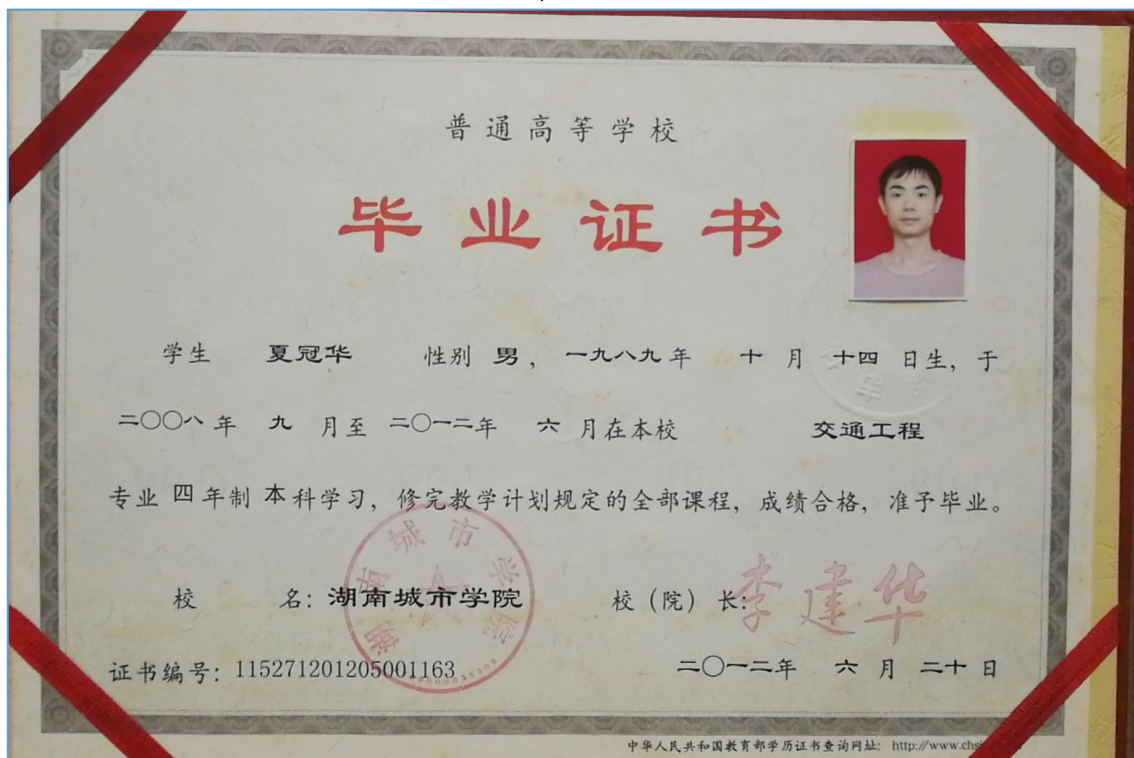 普通高等学校
毕业证书
学生 夏冠华 性别 男, 一九八九年 十月 十四 日生, 于
二〇〇八年 九 月至 二〇一二年 六 月在本校 交通工程
专业 四 年制 本 科学习, 修完教学计划规定的全部课程, 成绩合格, 准予毕业。
湖南城市学院
校 名: 湖南城市学院 校(院)长: 李建华
证书编号: 115271201205001163 二〇一二年 六 月 二十 日
中华人民共和国教育部学历证书查询网址: http://www.chs